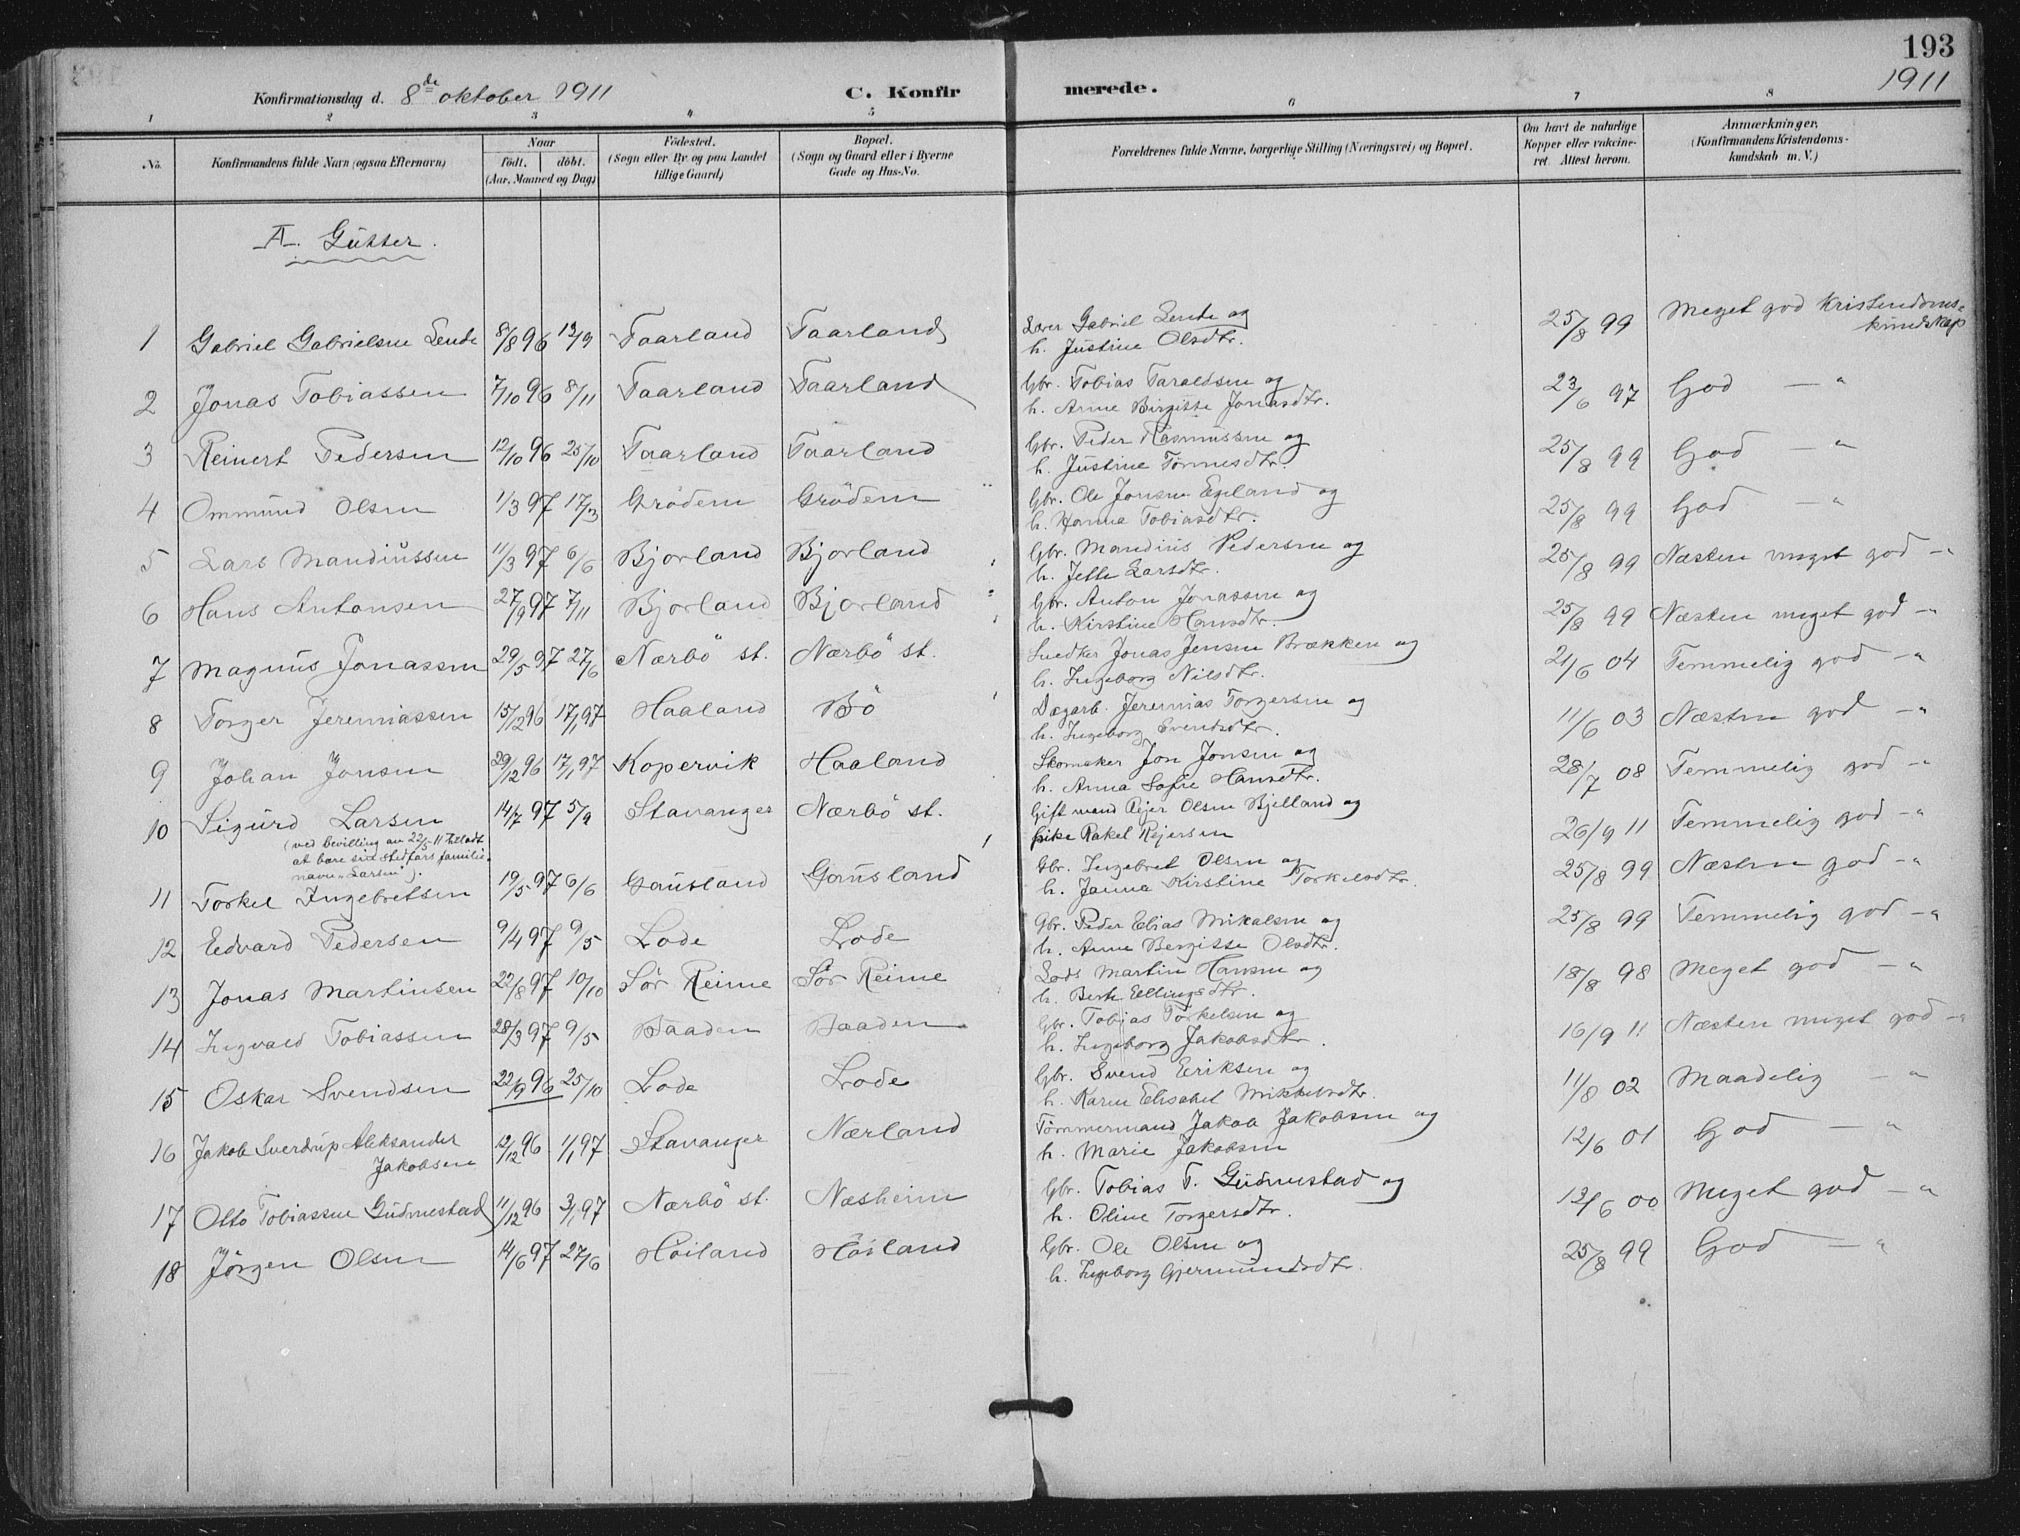 193
1911
Konfirmationsdag d. 8de oktober 1911
C. Konfirmerede.
1 2 3 4 5 6 7 8
No.
Konfirmandens fulde Navn (ogsaa Efternavn)
Naar
født. døbt.
(Aar, Maaned og Dag)
Fødested.
(Sogn eller By og paa Landet
tillige Gaard)
Bopæl.
(Sogn og Gaard eller i Byerne
Gade og Hus-No.
Forældrenes fulde Navne, borgerlige Stilling (Næringsvei) og Bopæl.
Om havt de naturlige
Kopper eller vakcine-
ret. Attest herom.
Anmærkninger.
(Konfirmandens Kristendoms-
kundskab m. V.)
A. Gutter.
1 Gabriel Gabrielsen Lende 8/8 96 13/9 Taarland Taarland Lærer Gabriel Lende og 25/8 99 Meget god Kristendoms-
h. Justine Olsdtr. kundskap
2 Jonas Tobiassen 7/10 96 8/11 Taarland Taarland Gbr. Tobias Taraldsen og 23/6 97 God — "
h. Anne Birgitte Jonasdtr.
3 Reinert Pedersen 12/10 96 25/10 Taarland Taarland Gbr. Peder Rasmussen og 25/8 99 God — "
h. Justine Tønnesdtr.
4 Ommund Olsen 1/3 97 17/3 Grødem Grødem Gbr. Ole Jonsen Egeland og 25/8 99 God — "
h. Hanna Tobiasdtr.
5 Lars Mandiussen 11/3 97 6/6 Bjorland Bjorland Gbr. Mandius Pedersen og 25/8 99 Næsten meget god — "
h. Jette Larsdtr.
6 Hans Antonsen 27/9 97 7/11 Bjorland Bjorland Gbr. Anton Jonassen og 25/8 99 Næsten meget god — "
h. Kirstine Hansdtr.
7 Magnus Jonassen 29/5 97 27/6 Nærbø st. Nærbø st. Snedker Jonas Jensen Brækken og 21/6 04 Temmelig god — "
h. Ingeborg Nilsdtr.
8 Torger Jeremiassen 15/12 96 17/1 97 Haaland Bø Dagarb. Jeremias Torgersen og 11/6 03 Næsten god — "
h. Ingeborg Svendsdtr.
9 Johan Jonsen 29/12 96 17/1 97 Kopervik Haaland Skomaker Jon Jonsen og 28/7 08 Temmelig god — "
h. Anna Sofie Hansdtr.
10 Sigurd Larsen 14/7 97 5/9 Stavanger Nærbø st. Gift mand Rejer Olsen Bjelland og 26/9 11 Temmelig god — "
(ved bevilling av 22/5-11 tilladt pike Rakel Rejersen
at bære sin stedfars familie-
navn "Larsen").
11 Torkel Ingebretsen 19/5 97 6/6 Gausland Gausland Gbr. Ingebret Olsen og 25/8 99 Næsten god — "
h. Janna Kirstine Torkelsdtr.
12 Edvard Pedersen 9/4 97 9/5 Lode Lode Gbr. Peder Elias Mikalsen og 25/8 99 Temmelig god — "
h. Anne Bergitte Olsdtr.
13 Jonas Martinsen 22/8 97 10/10 Sør Reime Sør Reime Lods Martin Hansen og 18/8 98 Meget god — "
h. Berte Ellingsdtr.
14 Ingvald Tobiassen 28/3 97 9/5 Baaden Baaden Gbr. Tobias Torkelsen og 16/9 11 Næsten meget god — "
h. Ingeborg Jakobsdtr.
15 Oskar Svendsen 22/9 96 25/10 Lode Lode Gbr. Svend Eriksen og 11/8 02 Maadelig — "
h. Karen Elisabet Mikkelsdtr.
16 Jakob Sverdrup Aleksander 12/12 96 1/1 97 Stavanger Nærland Tømmermand Jakob Jakobsen og 12/6 01 God — "
Jakobsen h. Marie Jakobsen
17 Otto Tobiassen Gudmestad 11/12 96 3/1 97 Nærbø st. Næsheim Gbr. Tobias T. Gudmestad og 12/6 00 Meget god — "
h. Oline Torgersdtr.
18 Jørgen Olsen 14/6 97 27/6 Høiland Høiland Gbr. Ole Olsen og 25/8 99 God — "
h. Ingeborg Gjermundsdtr.